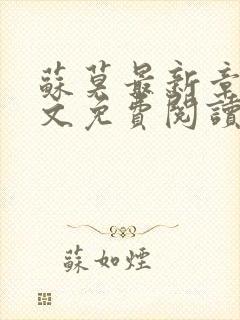 蘇莫最新章
文免費閱讀
蘇如煙